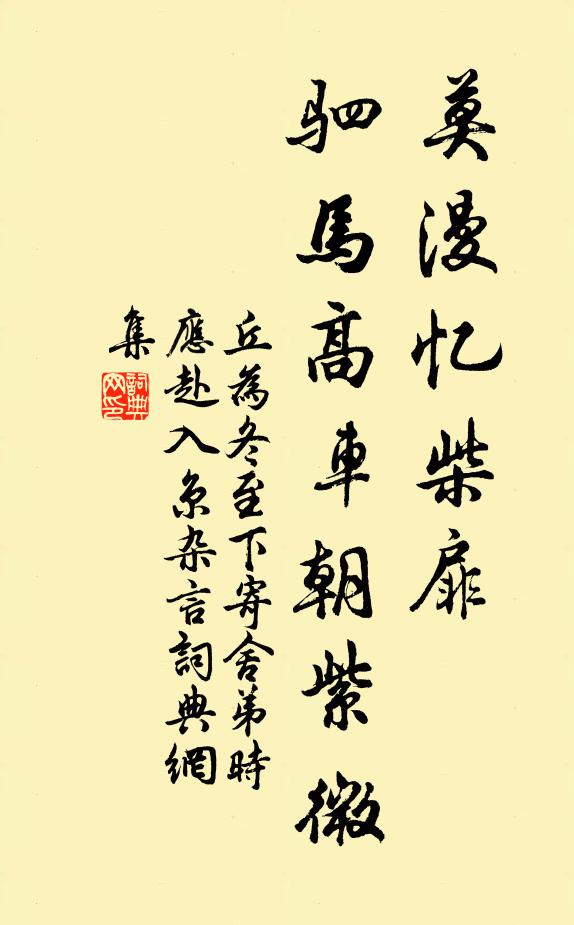 莫漫忆柴扉
驷馬高車朝紫微
丘為冬至下寄舍弟時
應赴入京杂言詞典網
集
詞典
网印